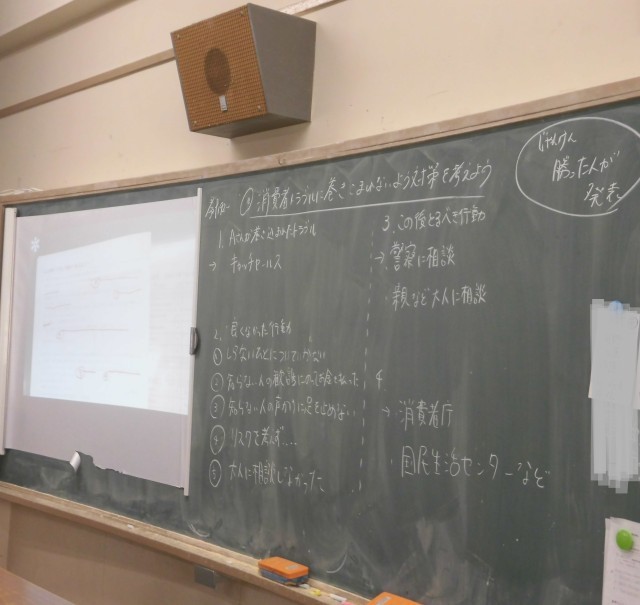 ◎消費者トラブルに巻きこまれないよう対策を考えよう
じゃんけん
勝った人が
発表
1. Aさんが巻き込まれたトラブル
→ キャッチセールス
2. 良くなかった行動
① しらない人についていかない
② 知らない人の勧誘にのってお金を払った
③ 知らない人の声かけに足を止めない
④ リスクを考えず....
⑤ 大人に相談しなかった
3. この後とるべき行動
→ 警察に相談
・親など大人に相談
4
→ 消費者庁
・国民生活センターなど